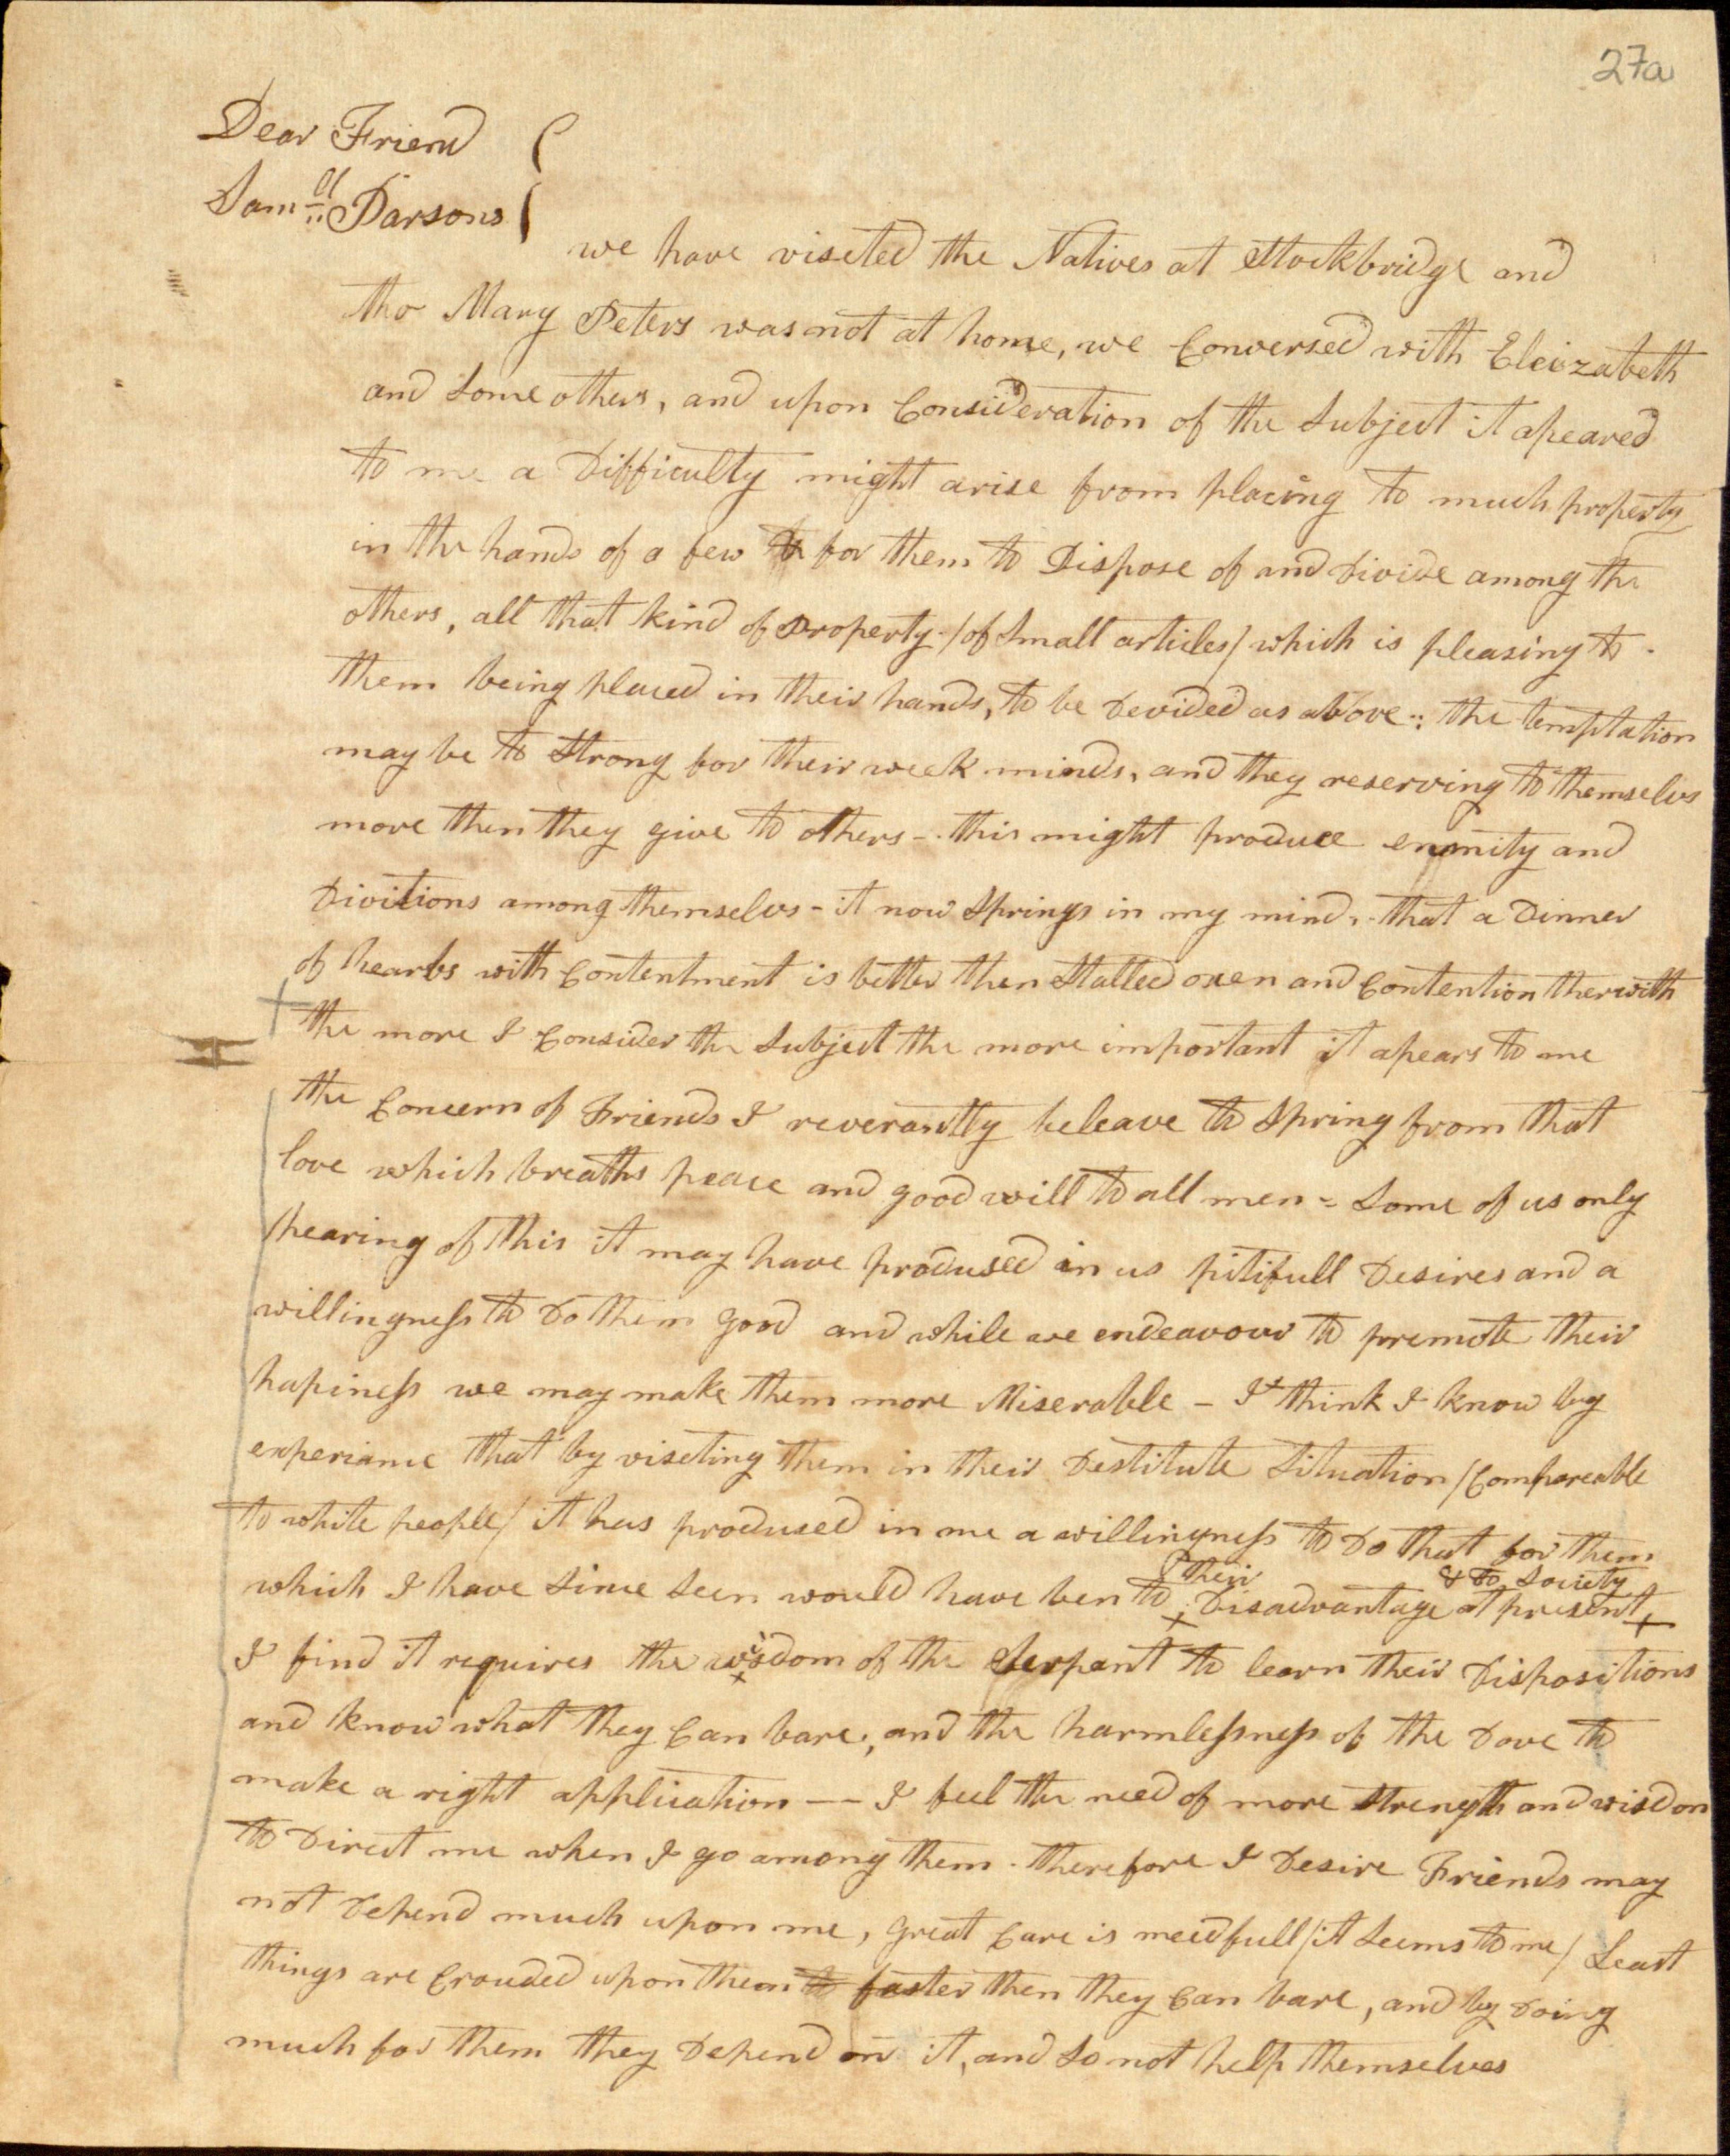 27a
Dear Friend
Samll Parsons
we have viseted the Natives at Stockbridge and
tho Mary Peters was not at home, we Conversed with Eleizabeth
and Some others, and upon Consideration of the Subject it apeared
to me a Difficulty might arise from placing to much property
in the hands of a few to for them to Dispose of and Divide among the
others, all that kind of property /of Small articles/ which is pleasing to
them being placed in their hands, to be Devided as above; the temptation
may be to Strong for their week minds, and they reserving to themselvs
more then they give to others - this might produce enmity and
Divitions among themselvs - it now Springs in my mind, that a Dinner
of hearbs with Contentment is better then Stalled oxen and Contention therwith
the more I Consider the Subject the more important it apears to me
the Concern of Friends I reverantly beleave to Spring from that
love which breaths peace and good will to all men = Some of us only
hearing of this it may have prodused in us pitifull Desires and a
willingness to Do them good and while we endeavour to premote their
hapiness we may make them more Miserable - I think I know by
experiance that by viseting them in their Destitute Situation /Compareable
to white people/ it has prodused in me a willingness to Do that for them
which I have Since Seen would have ben to their Disadvantage & to Society at present
I find it requires the wisdom of the Serpent to learn their Dispositions
and know what they Can bare, and the harmlessness of the Dove to
make a right application -- I feel the need of more Strength and wisdom
to Direct me when I go among them - therefore I Desire Friends may
not Depend much upon me, great Care is needfull /it Seems to me/ Least
things are Crouded upon them to faster then they Can bare, and by Doing
much for them they Depend on it, and Do not help themselves